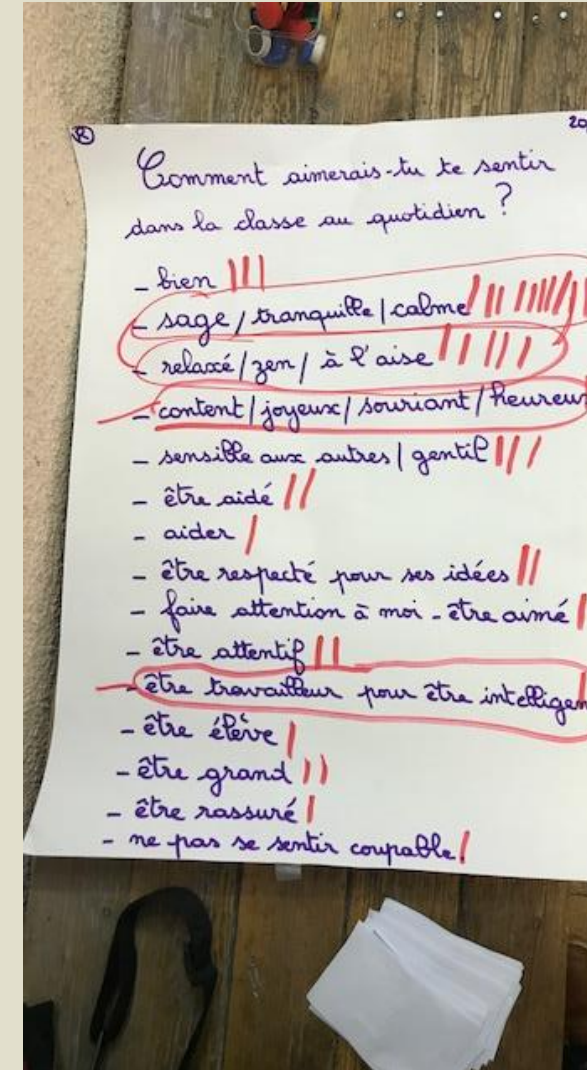 R
20
Comment aimerais-tu te sentir
dans la classe au quotidien ?
- bien |||
- sage / tranquille / calme
- relaxé / zen / à l'aise |||||
- content / joyeux / souriant / heureux
- sensible aux autres / gentil ||||
- être aidé ||
- aider |
- être respecté pour ses idées ||
- faire attention à moi - être aimé |
- être attentif ||
- être travailleur pour être intelligen
- être élève |
- être grand ||
- être rassuré |
- ne pas se sentir coupable |